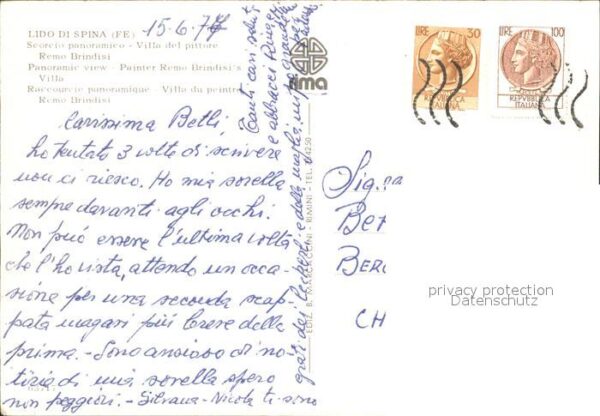 LIDO DI SPINA (FE)
Scorcio panoramico - Villa del pittore
Remo Brindisi
Panoramic view - Painter Remo Brindisi's
Villa
Raccourcie panoramique - Villa du peintre
Remo Brindisi
15.6.77
Carissima Betli,
ho tentato 3 volte di scrivere
non ci riesco. Ho mia sorella
sempre davanti agli occhi.
Non può essere l'ultima volta
che l'ho vista, attendo un occa
sione per una seconda scap
pata magari più breve della
prima. - Sono ansioso di no
tizia di mia sorella spero
non peggiori. - Silvana - Nicola ti sono
grati dei leckerli e della maglia
Tanti cari saluti
e abbracci
EDIZ. B. MARCACCINI - RIMINI - TEL.
ima
LIRE 30
REPVBBLICA
ITALIANA
LIRE 100
REPVBBLICA
ITALIANA
Sig.ra
Bet
BERG
CH
privacy protection
Datenschutz